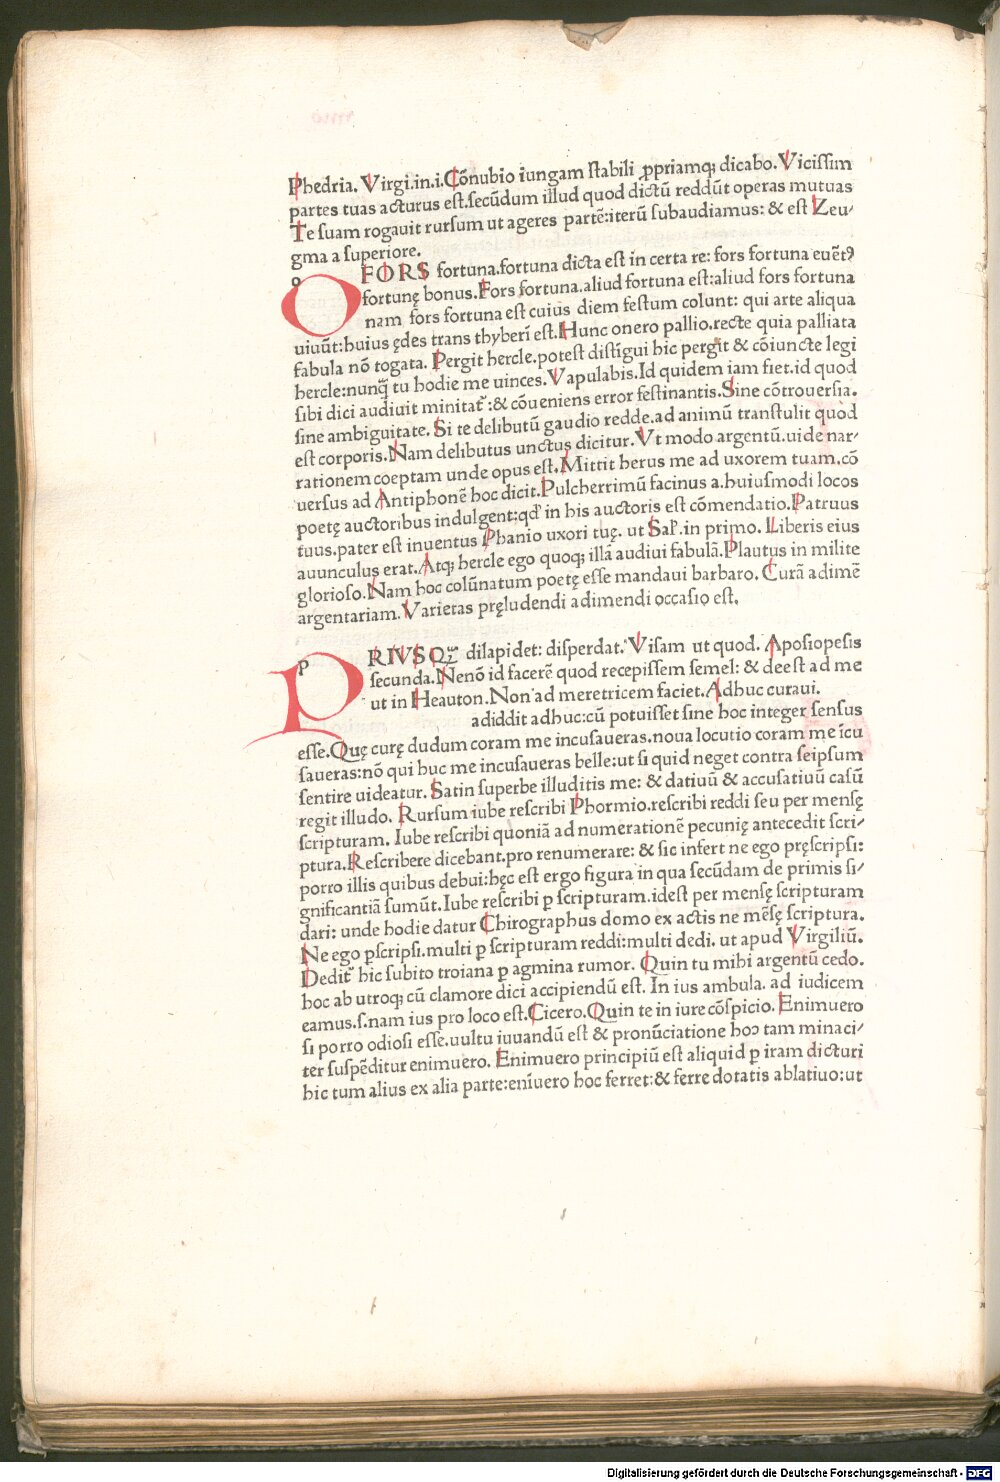 Phedria. Virgi.in.i.Cōnubio iungam ſtabili ꝓpriamq; dicabo. Viciſſim
partes tuas acturus eſt.ſecūdum illud quod dictū reddūt operas mutuas
Te ſuam rogauit rurſum ut ageres partē:iterū ſubaudiamus: & eſt Zeu-
gma a ſuperiore.
O FORS fortuna.fortuna dicta eſt in certa re: fors fortuna euētꝰ
fortunę bonus.Fors fortuna.aliud fortuna eſt:aliud fors fortuna
nam fors fortuna eſt cuius diem feſtum colunt: qui arte aliqua
uiuūt:huius ędes trans thyberī eſt.Hunc onero pallio.recte quia palliata
fabula nō togata. Pergit hercle.poteſt diſtīgui hic pergit & cōiuncte legi
hercle:nunq̄ tu hodie me uinces.Vapulabis.Id quidem iam fiet.id quod
ſibi dici audiuit minitat᷑:& cōueniens error feſtinantis.Sine cōtrouerſia.
ſine ambiguitate. Si te delibutū gaudio redde.ad animū tranſtulit quod
eſt corporis.Nam delibutus unctus dicitur.Vt modo argentū.uide nar-
rationem coeptam unde opus eſt.Mittit herus me ad uxorem tuam.cō
uerſus ad Antiphonē hoc dicit.Pulcherrimū facinus a.huiuſmodi locos
poetę auctoribus indulgent:qđ in his auctoris eſt cōmendatio.Patruus
tuus.pater eſt inuentus Phanio uxori tuę. ut Sal᷑.in primo. Liberis eius
auunculus erat.Atq; hercle ego quoq; illā audiui fabulā.Plautus in milite
glorioſo.Nam hoc colūnatum poetę eſſe mandaui barbaro. Curā adimē
argentariam.Varietas pręludendi adimendi occaſio eſt.
PRIVSQ̄ dilapidet: diſperdat. Viſam ut quod. Apoſiopeſis
ſecunda.Nenō id facerē quod recepiſſem ſemel: & deeſt ad me
ut in Heauton.Non ad meretricem faciet.Adhuc curaui.
adiddit adhuc:cū potuiſſet ſine hoc integer ſenſus
eſſe.Quę curę dudum coram me incuſaueras.noua locutio coram me īcu
ſaueras:nō qui huc me incuſaueras belle:ut ſi quid neget contra ſeipſum
ſentire uideatur. Satin ſuperbe illuditis me: & datiuū & accuſatiuū caſū
regit illudo. Rurſum iube reſcribi Phormio.reſcribi reddi ſeu per menſę
ſcripturam. Iube reſcribi quoniā ad numerationē pecunię antecedit ſcri-
ptura.Reſcribere dicebant.pro renumerare: & ſic infert ne ego pręſcripſi:
porro illis quibus debui:hęc eſt ergo figura in qua ſecūdam de primis ſi-
gnificantiā ſumūt.Iube reſcribi ꝑ ſcripturam.ideſt per menſę ſcripturam
dari: unde hodie datur Chirographus domo ex actis ne mēſę ſcriptura.
Ne ego ꝑſcripſi.multi ꝑ ſcripturam reddi:multi dedi. ut apud Virgiliū.
Dedit᷑ hic ſubito troiana ꝑ agmina rumor. Quin tu mihi argentū cedo.
hoc ab utroq; cū clamore dici accipiendū eſt. In ius ambula. ad iudicem
eamus.ſ.nam ius pro loco eſt.Cicero.Quin te in iure cōſpicio. Enimuero
ſi porro odioſi eſſe.uultu iuuandū eſt & pronūciatione hoꝛ tam minaci-
ter ſuſpēditur enimuero. Enimuero principiū eſt aliquid ꝑ iram dicturi
hic tum alius ex alia parte:eniuero hoc ferret:& ferre dotatis ablatiuo:ut
Digitalisierung gefördert durch die Deutsche Forschungsgemeinschaft - DFG